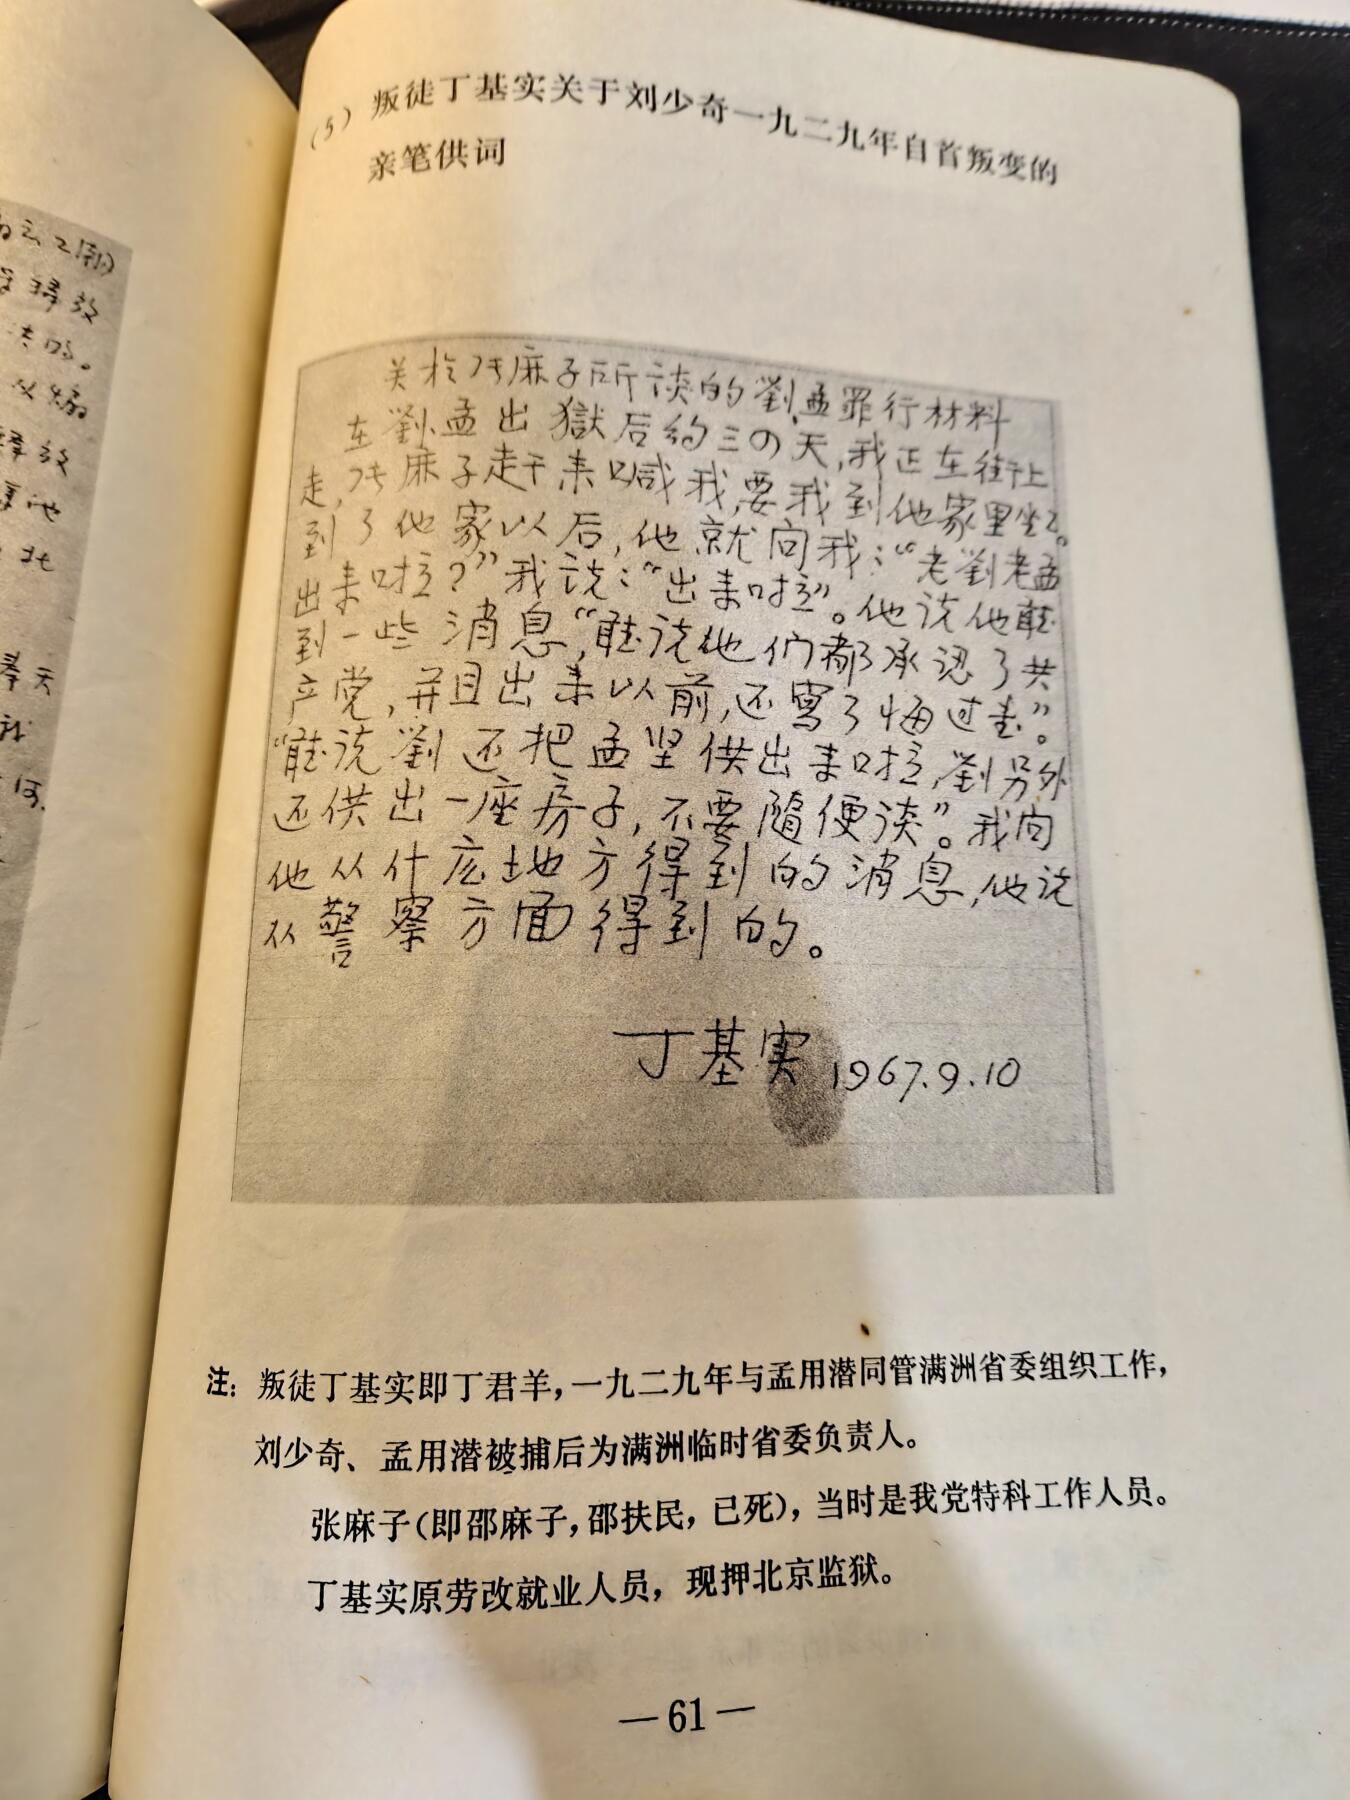 (5) 叛徒丁基实关于刘少奇一九二九年自首叛变的
亲笔供词
关於张麻子所谈的劉、孟罪行材料
在劉、孟出獄后約三四天,我正在街上
走,张麻子赶来喊我,要我到他家里坐坐。
到了他家以后,他就向我:“老劉老孟
出来啦?”我说:“出来啦”。他说他聽
到一些消息,“聽说他们都承認了共
产党,并且出来以前,还寫了悔过书”。
“聽说劉还把孟坚供出来啦,劉另外
还供出一座房子,不要随便谈”。我问
他从什庅地方得到的消息,他说
从警察方面得到的。
丁基实 1967.9.10
注:叛徒丁基实即丁君羊,一九二九年与孟用潜同管满洲省委组织工作,
刘少奇、孟用潜被捕后为满洲临时省委负责人。
张麻子(即邵麻子,邵扶民,已死),当时是我党特科工作人员。
丁基实原劳改就业人员,现押北京监狱。
—61—